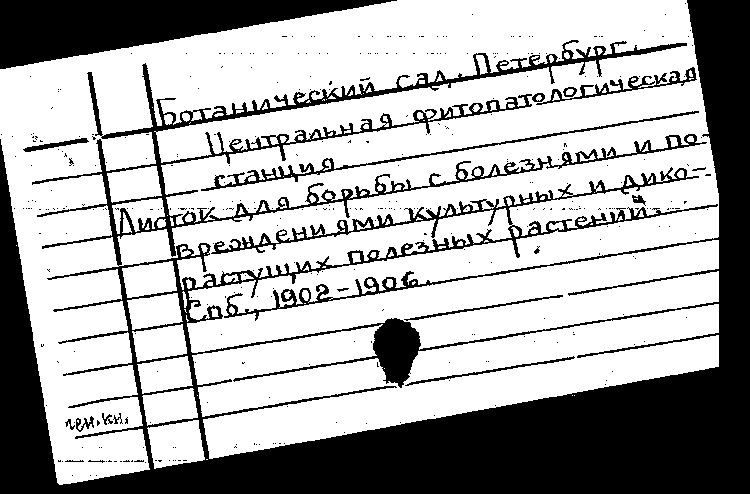 Ботанический сад. Петербург.
Центральная фитопатологическая
станция.
Листок для борьбы с болезнями и по-
вреждениями культурных и дико-
растущих полезных растений.
Спб., 1902-1906.
ген.кн.